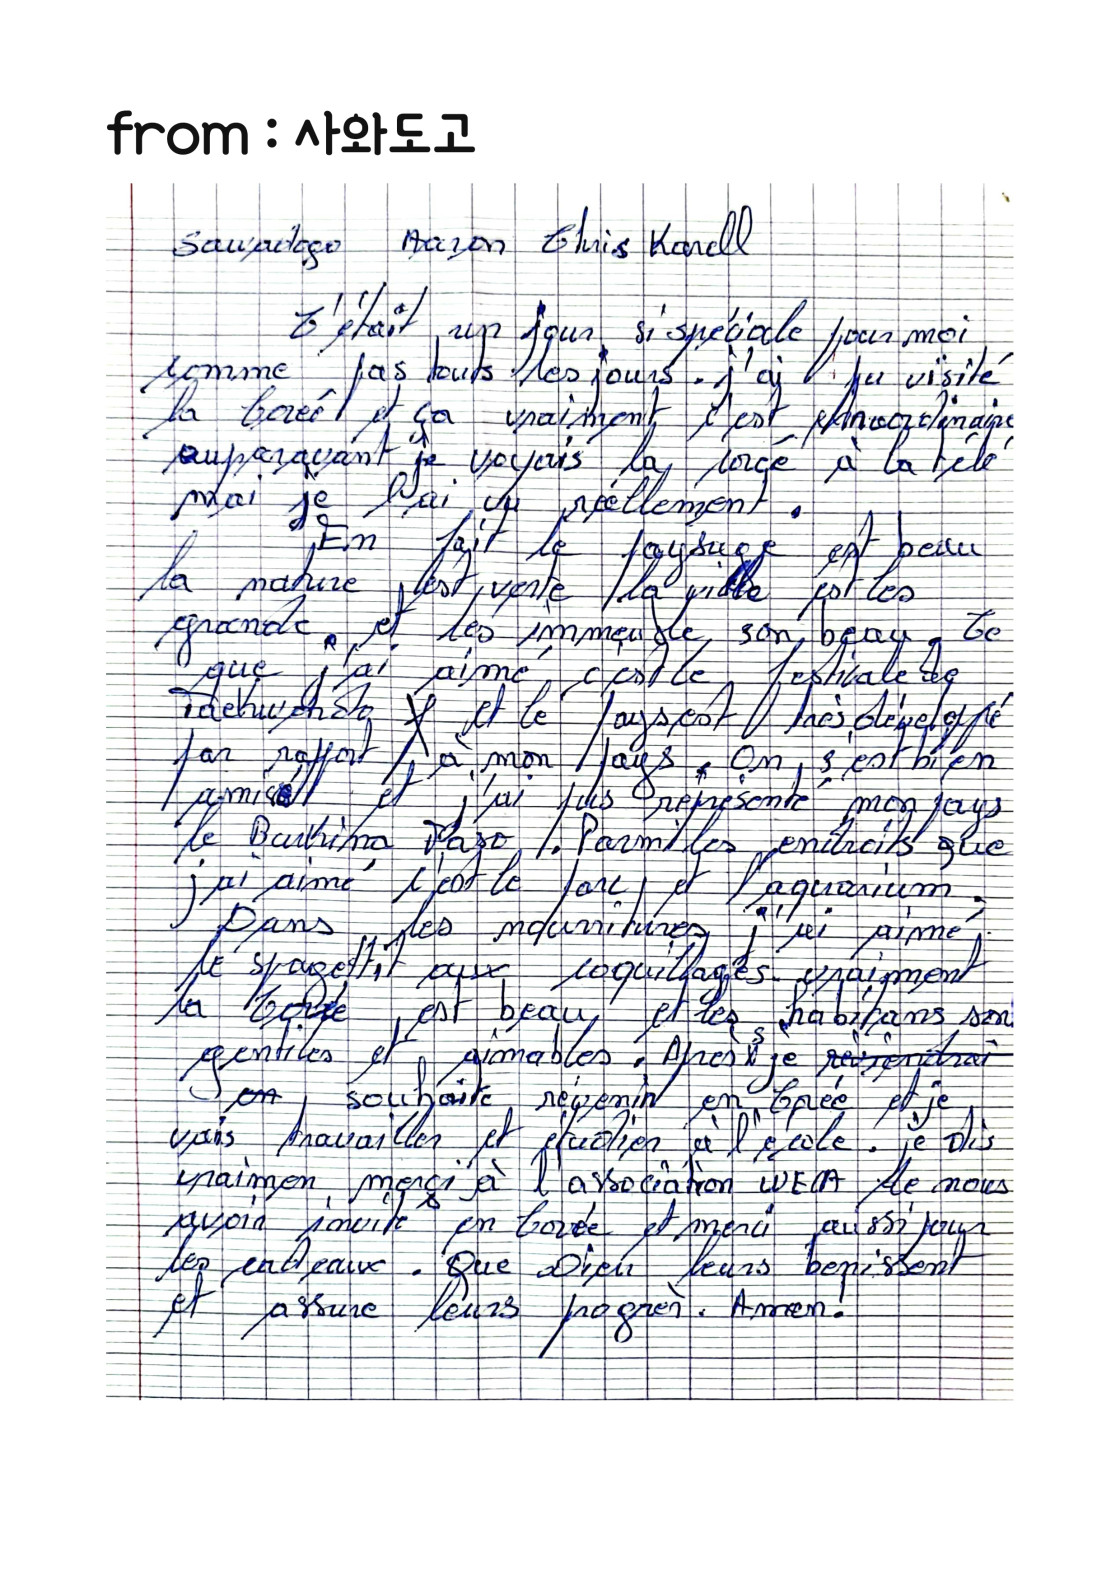 from : 사와도고
Sawadogo Aaron Chris Karell
C'était un jour si spéciale pour moi
comme pas touts les jours. j'ai pu visité
la Coreé et ça vraiment c'est
auparavant je voyais la corée à la télé
mai je l'ai vu réellement.
En fait le paysage est beau
la nature est verte la ville est les
grande. et les immeuble son beau. Ce
que j'ai aimé c'est le festivale de
Taekwondo et le pays est très développé
par rapport à mon pays. On s'est bien
et j'ai pus représenté mon pays
le Burkina Faso. Parmi les endroits que
j'ai aimé c'est le parc et l'aquarium.
Dans les nourritures j'ai aimé
le spagettit aux coquillages. vraiment
la Corée est beau et les habitans son
gentiles et aimables. Après je reviendrai
on souhaite revenir en Corée et je
vais travailler et étudier à l'école. je dis
vraimen merci à l'association WECA de nous
avoir invité en Corée et merci aussi pour
les cadeaux. Que Dieu leurs benissent
et assure leurs progrèr. Amen!